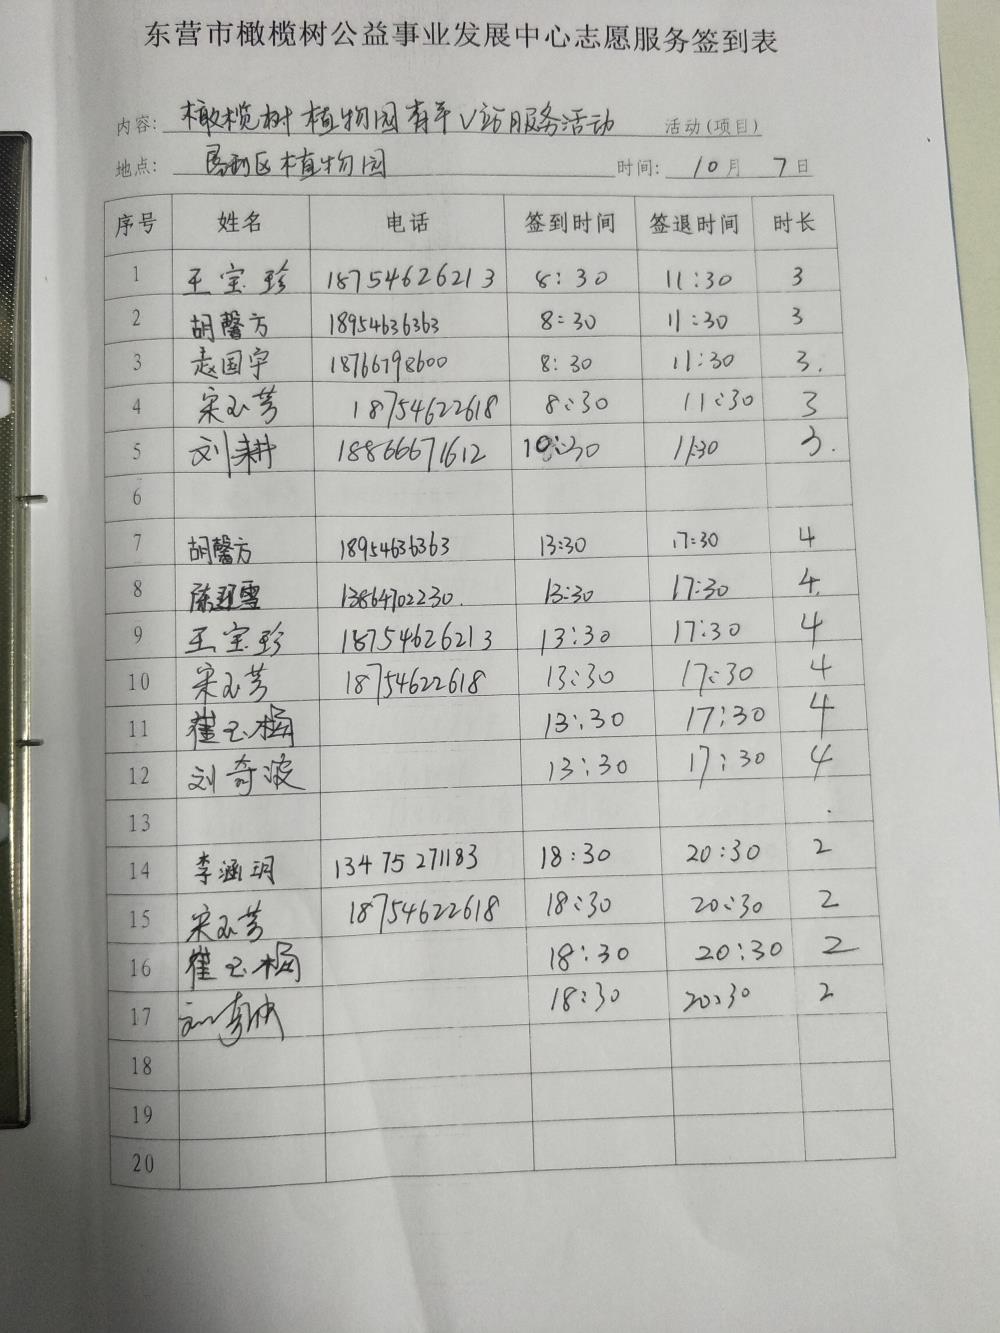 东营市橄榄树公益事业发展中心志愿服务签到表
内容: 橄榄树植物园青年V站服务活动 活动(项目)
地点: 垦利区植物园 时间: 10月 7日
序号 姓名 电话 签到时间 签退时间 时长
1 王宝珍 18754626213 8:30 11:30 3
2 胡馨方 18954636363 8:30 11:30 3
3 赵国宇 18766798600 8:30 11:30 3.
4 宋玉芳 18754622618 8:30 11:30 3
5 刘耕 18866671612 10:30 11:30 3.
6
7 胡馨方 18954636363 13:30 17:30 4
8 13864702230. 13:30 17:30 4.
9 王宝珍 18754626213 13:30 17:30 4
10 宋玉芳 18754622618 13:30 17:30 4
11 崔玉梅 13:30 17:30 4
12 刘奇波 13:30 17:30 4
13
14 李涵玥 13475271183 18:30 20:30 2
15 宋玉芳 18754622618 18:30 20:30 2
16 崔玉梅 18:30 20:30 2
17 18:30 20:30 2
18
19
20